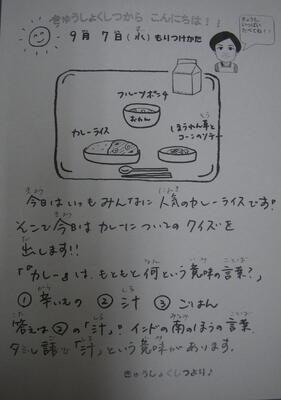 きゅうしょくしつから こんにちは！！
9月 7日(水) もりつけかた
きょうも
いっぱい
たべてね！！
フルーツポンチ
おわん
カレーライス
ほうれん草と
コーンのソテー
今日はいつもみんなに人気のカレーライスです!
そこで今日はカレーについてのクイズを
出します!!
「『カレー』は、もともと何という意味の言葉?」
① 辛いもの ② 汁 ③ ごはん
答えは②の「汁」。インドの南のほうの言葉、
タミル語で「汁」という意味があります。
きゅうしょくしつより♪